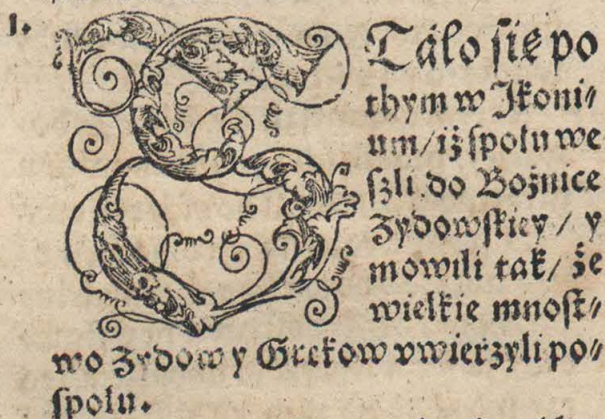 1. STáło się po
thym w Ikoni⸗
um/iż społu we
szli do Bożnice
Zydowskiey / y
mowili tak/ że
wielkie mnost⸗
wo Zydow y Grekow vwierzyli po⸗
społu.